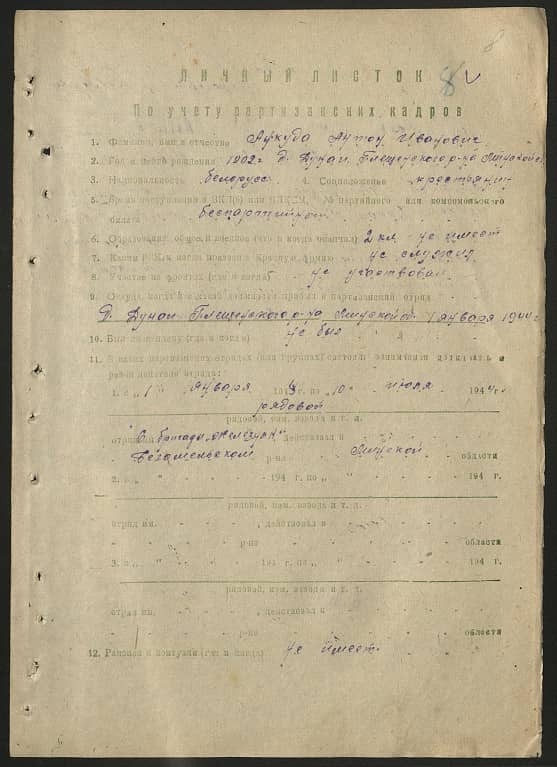 8
8 v
ЛИЧНЫЙ ЛИСТОК
По учету партизанских кадров
1. Фамилия, имя и отчество Антон Иванович
2. Год и место рождения 1902 г д. Дунаи Плещеницкого р-на Минской о
3. Национальность белорусс 4. Соцположение крестьянин
5. Время вступления в ВКП(б) или ВЛКСМ, № партийного или комсомольского
билета беспартийный
6. Образование общее и военное (что и когда окончил) 2 кл. не имеет
7. Каким РВК и когда призван в Красную Армию не служил
8. Участие на фронтах (где и когда) не участвовал
9. Откуда, когда и прибыл в партизанский отряд
д. Дунаи Плещеницкого р-на Минской о 1 января 1944 г
10. Был ли в плену (где и когда) не был
11. В каких партизанских отрядах (или группах) состоял, занимаемая должность и
район действия отряда:
1. с „1" января 194 г. по „10" июля 1944 г.
рядовой
рядовой, ком. взвода и т. д.
отряд бригады „Железняк" действовал в
Бегомльском р-не Минской области
2. с „ " 194 г. по „ " 194 г.
рядовой, ком. взвода и т. д.
отряд им. , действовал в
р-не области
3. с „ " 194 г. по „ " 194 г.
рядовой, ком. взвода и т. т.
отряд им. , действовал в
р-не области
12. Ранения и контузии (где и когда) не имеет